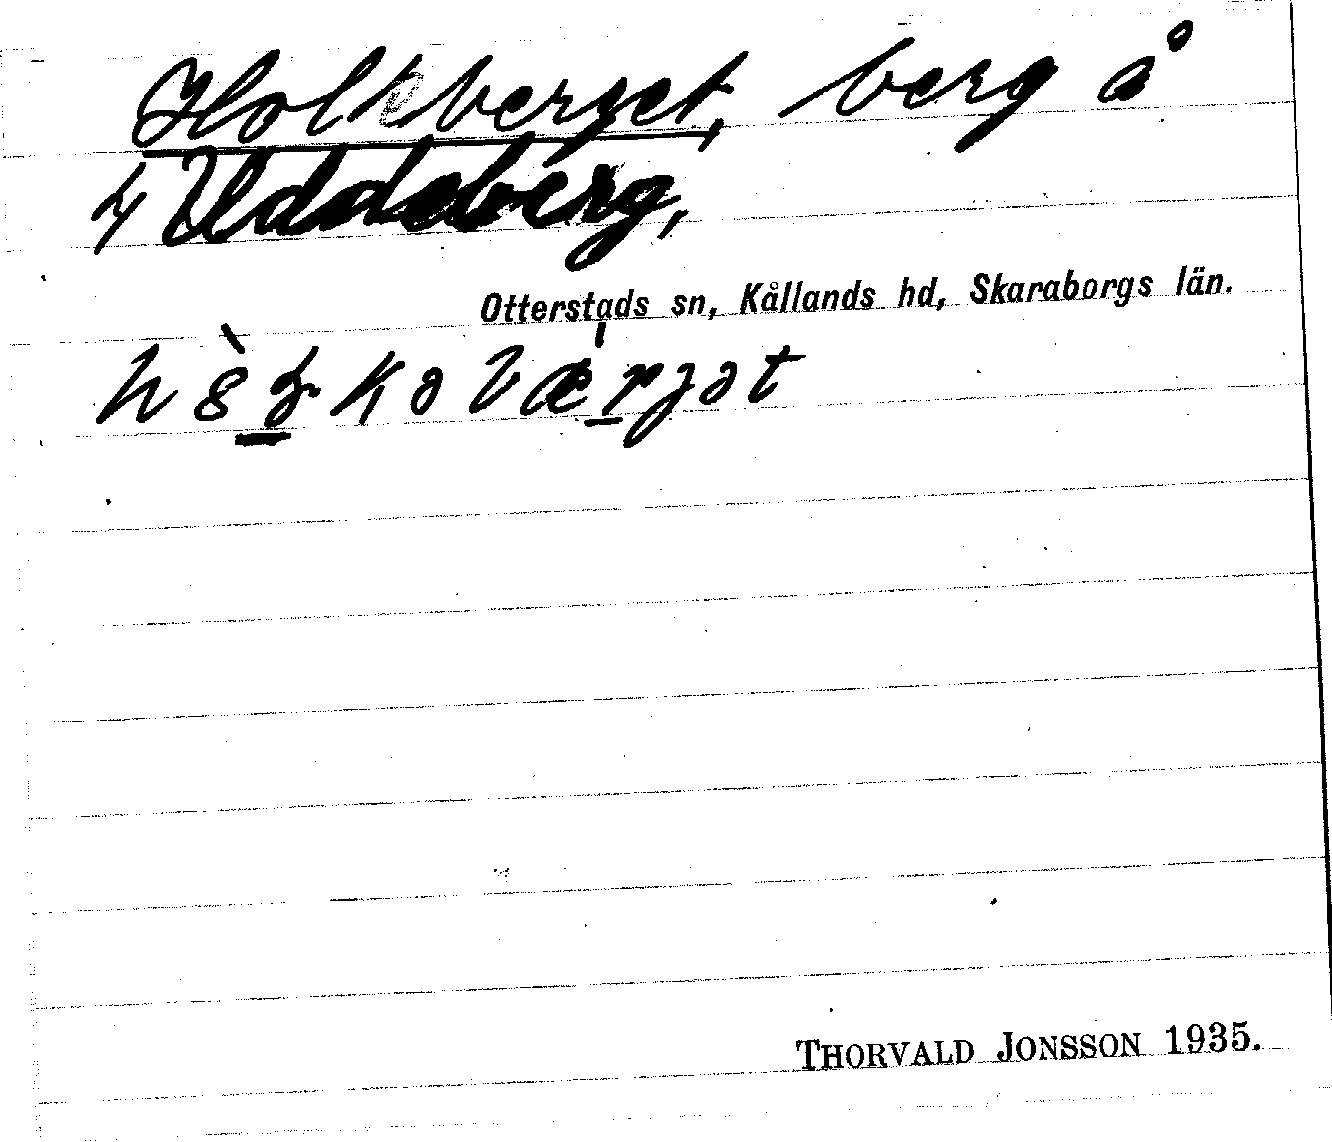 Holkberget, berg å
Uddeberg,
Otterstads sn, Kållands hd, Skaraborgs län.
THORVALD JONSSON 1935.